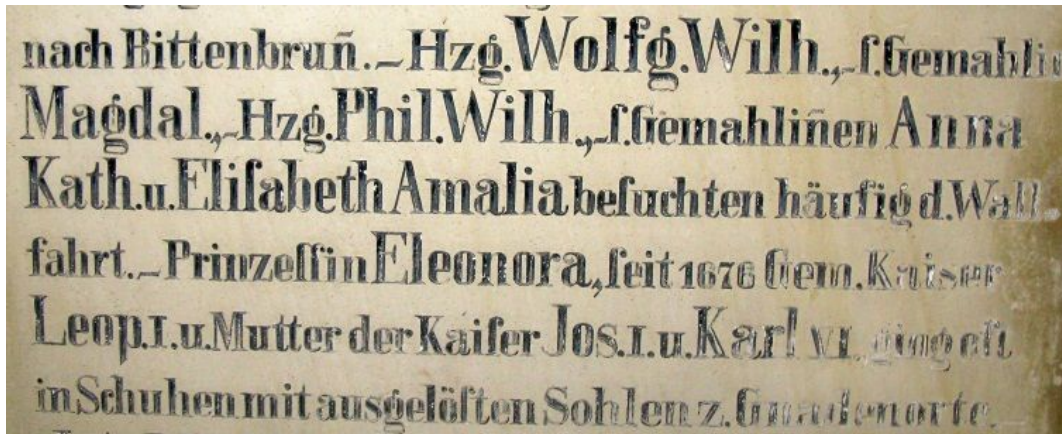 nach Bittenbrun̄.–Hzg.Wolfg.Wilh.,–ſ.Gemahlin
Magdal.,–Hzg.Phil.Wilh.,–ſ.Gemahlin̄en Anna
Kath.u.Eliſabeth Amalia beſuchten häufig d.Wall-
fahrt.–Prinzeſſin Eleonora, ſeit 1676 Gem. Kaiser
Leop.I.u.Mutter der Kaiſer Jos.I.u.Karl VI. ging oft
in Schuhen mit ausgelöſten Sohlen z. Gnadenorte.